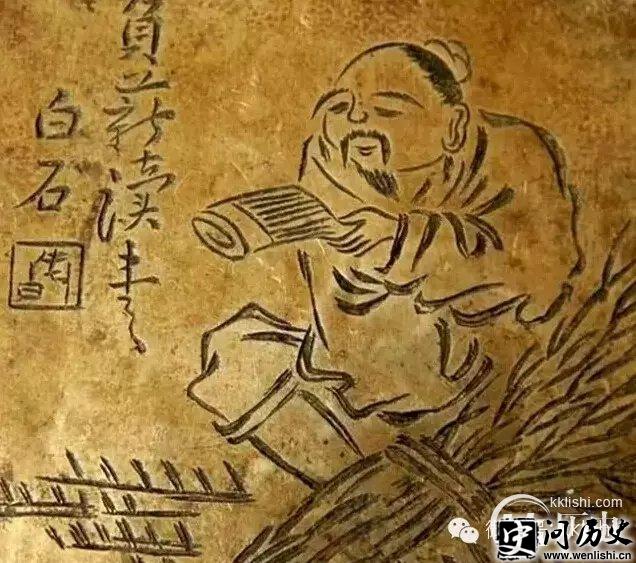 負薪讀書
白石
kklishi.com
微
问历史
www.wenlishi.cn